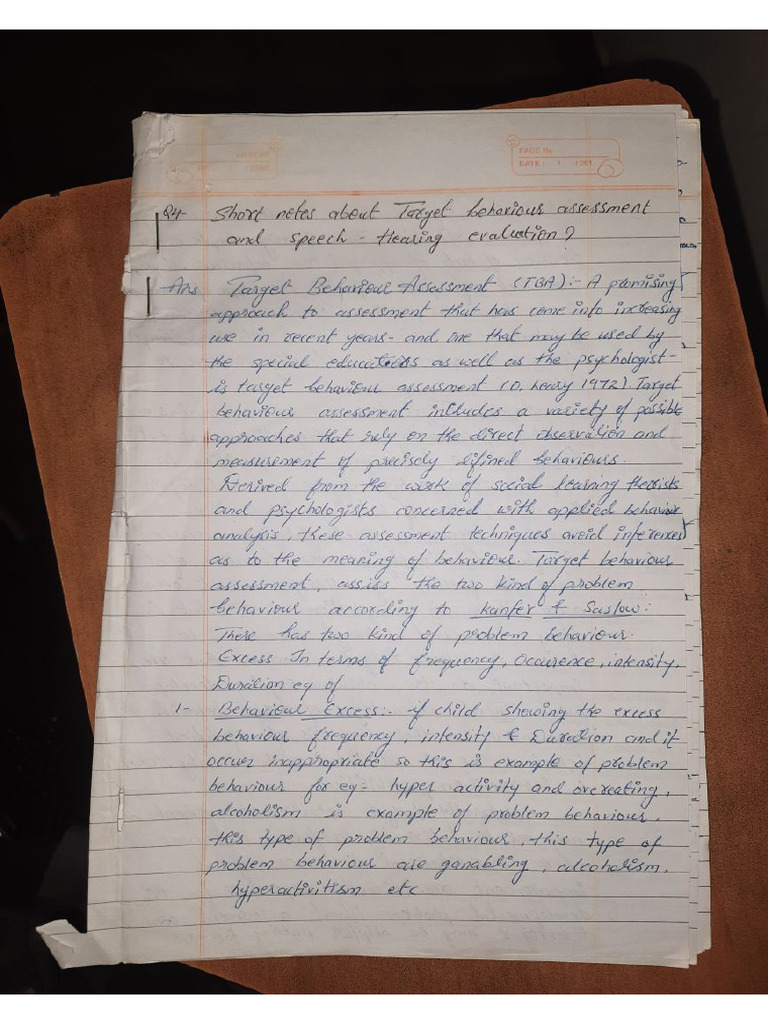 PAGE No
DATE :
Q4- Short notes about Target behaviour assessment
and speech - Hearing evaluation?
Ans Target Behaviour Assessment (TBA):- A promising
approach to assessment that has come into increasing
use in recent years- and one that may be used by
the special educations as well as the psychologist-
is target behaviour assessment (O. leary 1972). Target
behaviour assessment includes a variety of possible
approaches that rely on the direct observation and
measurement of precisely defined behaviours.
Derived from the work of social learning theorists
and psychologists concerned with applied behaviour
analysis, these assessment techniques avoid inferences
as to the meaning of behaviour. Target behaviour
assessment, assiss the two kind of problem
behaviour according to Kanfer & Saslow:
There has two kind of problem behaviour.
Excess In terms of frequency, Occurence, intensity,
Duration eg of
1- Behaviour Excess:- if child showing the excess
behaviour frequency, intensity & Duration and it
occur inappropriate so this is example of problem
behaviour for eg:- hyper activity and overeating,
alcoholism is example of problem behaviour.
this type of problem behaviour, this type of
problem behaviour are ganabling, alcoholism,
hyperactivitism etc